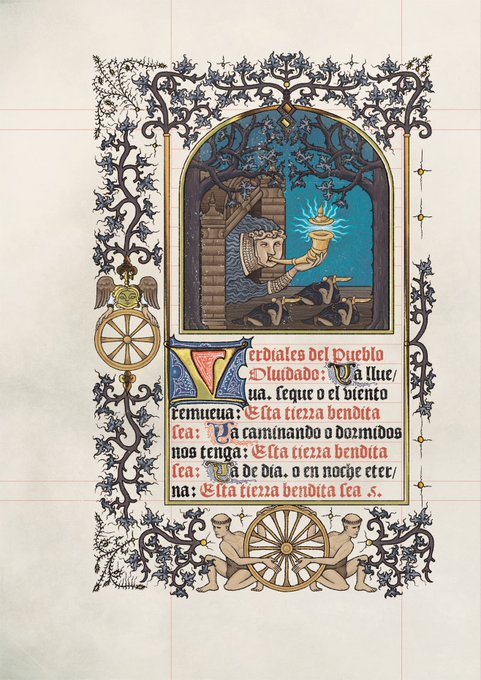 Verdiales del Pueblo
Olvidado: Ya llue/
va. seque o el viento
remueva: Esta tierra bendita
sea: Ya caminando o dormidos
nos tenga: Esta tierra bendita
sea: Ya de dia. o en noche eter/
na: Esta tierra bendita sea .s.